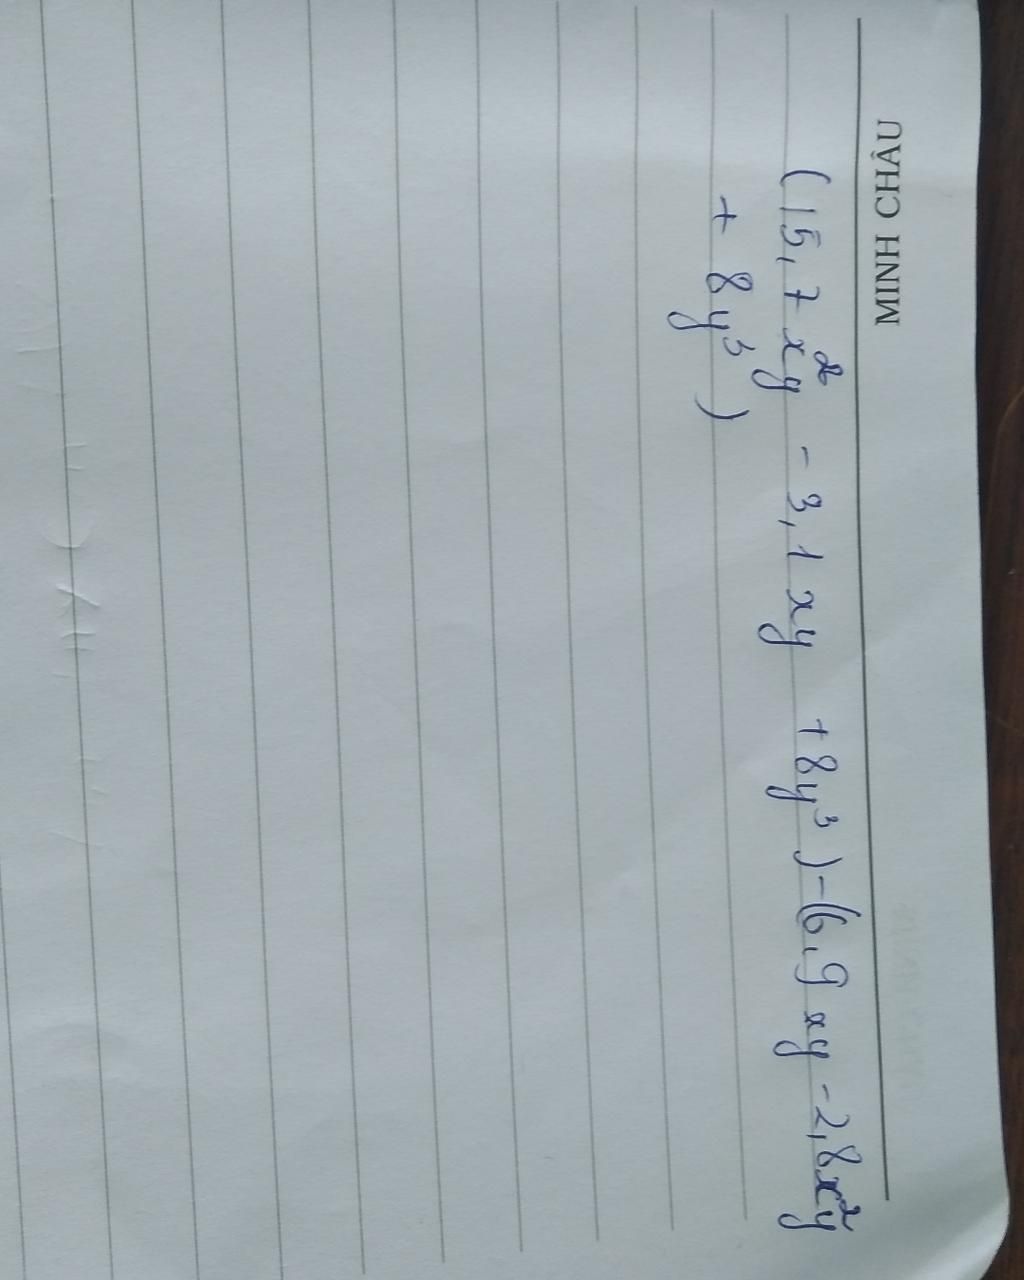 MINH CHÂU
(15,7 x²y - 3,1 xy + 8y³) - (6,9 xy - 2,8x²y
+ 8y³)